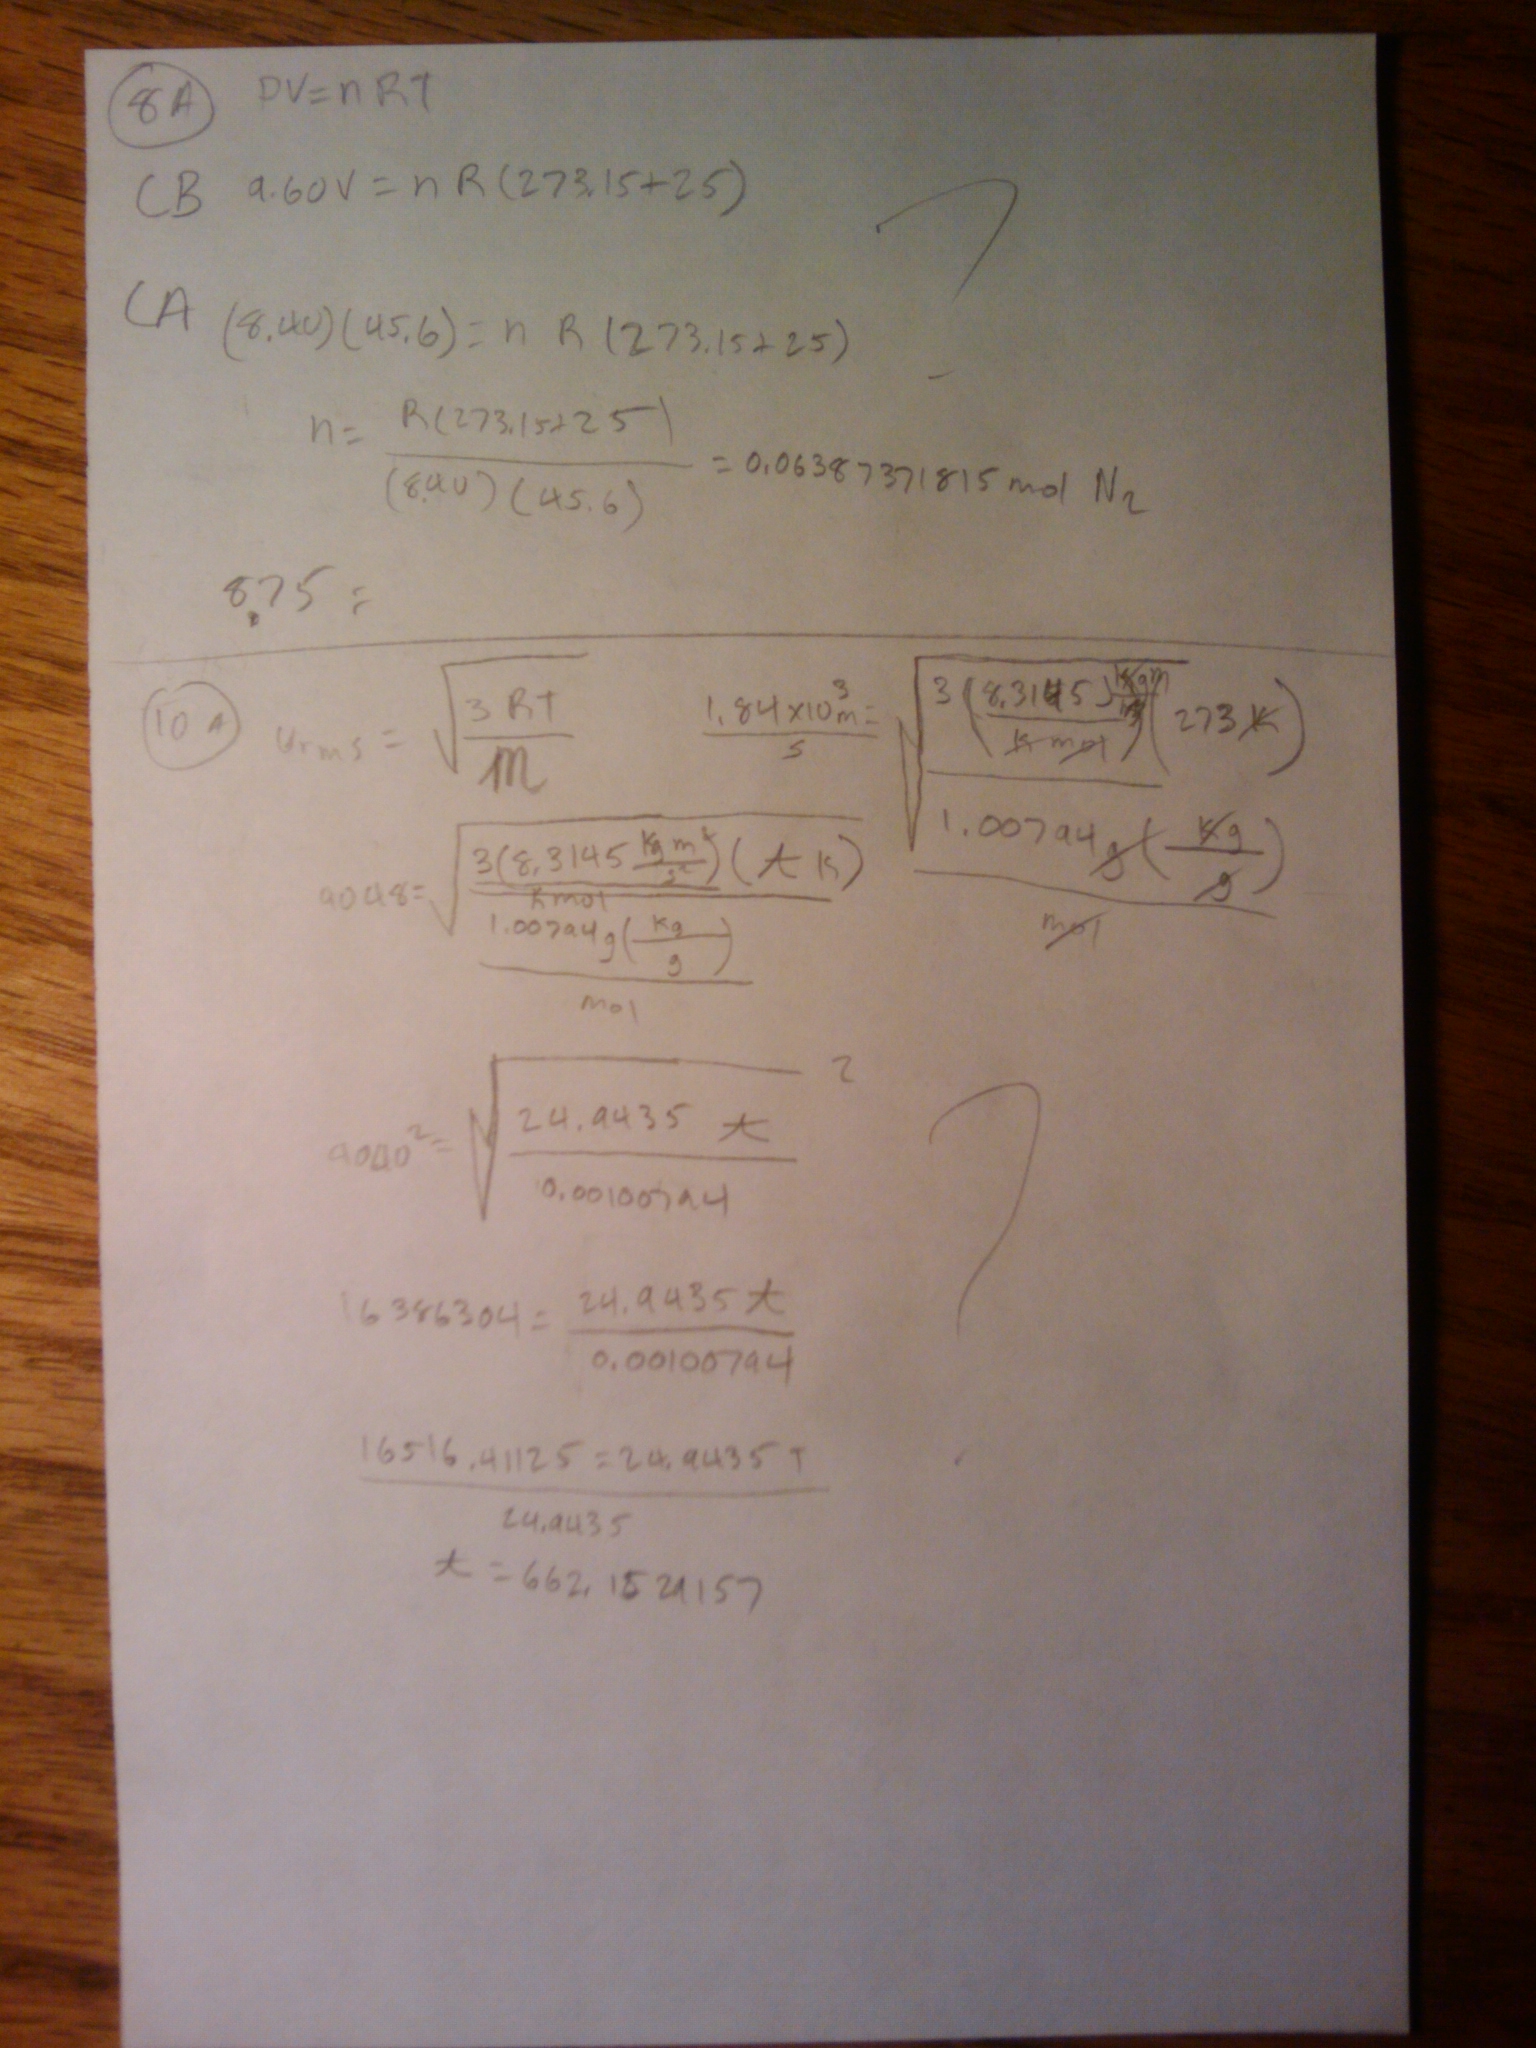 8A PV=nRT
CB 9.60V=nR(273.15+25)
?
CA (8.40)(45.6)=nR(273.15+25)
n= R(273.15+25)
(8.40)(45.6)
=0.06387371815 mol N2
8.75=
10A urms = √ 3RT
m
1.84x10^3 m =
s
√ 3(8.3145)
K mol
(273 K)
1.00794g(Kg
g)
mol
4048= √ 3(8.3145 Kg m^2
s^2)(t K)
K mol
1.00794g(Kg
g)
mol
2
= √ 24.9435 t
0.00100794
?
16386304= 24.9435 t
0.00100794
16516.41125=24.9435 T
24.9435
t=662.1529157